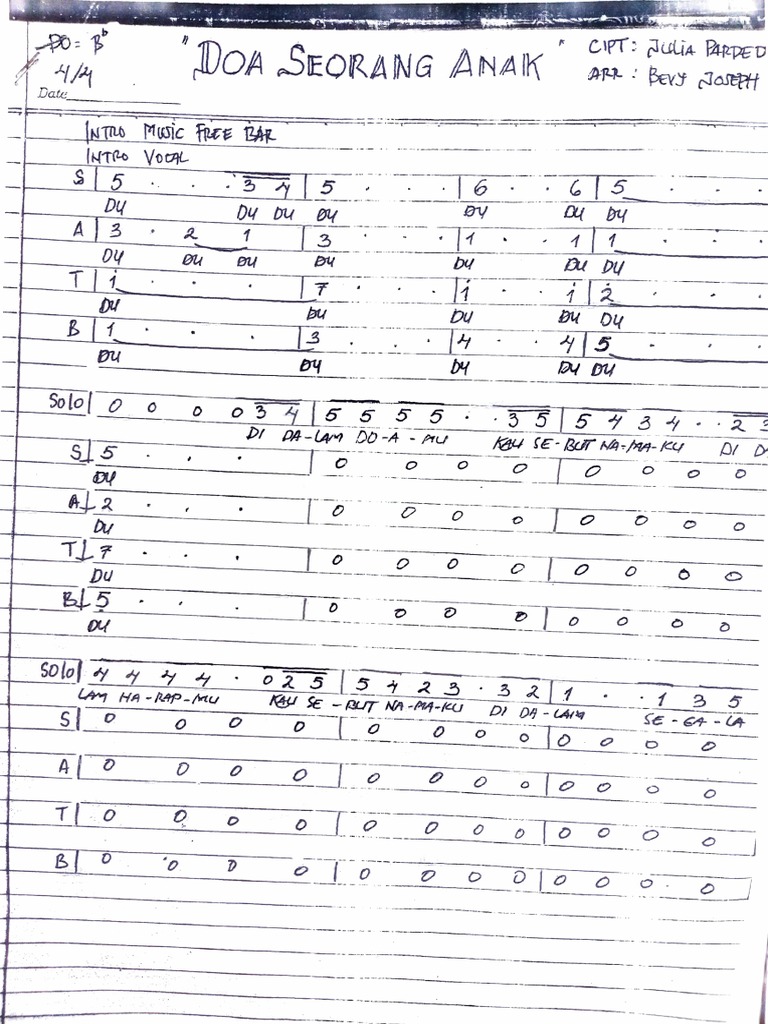 DO = Bb "DOA SEORANG ANAK" CIPT : JULIA PARDED
4/4 ARR : BEVY JOSEPH
Date
INTRO MUSIC FREE BAR
INTRO VOCAL
S | 5 . . . 3 4 | 5 . . . | 6 . . 6 | 5 . . .
DU DU DU DU DU DU DU
A | 3 . 2 1 | 3 . . . | 1 . . 1 | 1 . . .
DU DU DU DU DU DU DU
T | 1 . . . | 7 . . . | 1 . . 1 | 2 . . .
DU DU DU DU DU
B | 1 . . . | 3 . . . | 4 . . 4 | 5 . . .
DU DU DU DU DU
Solo | 0 0 0 0 3 4 | 5 5 5 5 . . 3 5 | 5 4 3 4 . . 2 3
DI DA-LAM DO-A-MU KAU SE-BUT NA-MA-KU DI D
S | 5 . . . | 0 0 0 0 | 0 0 0 0
DU
A | 2 . . . | 0 0 0 0 | 0 0 0 0
DU
T | 7 . . . | 0 0 0 0 | 0 0 0 0
DU
B | 5 . . . | 0 0 0 0 | 0 0 0 0
DU
SOLO | 4 4 4 4 . 0 2 5 | 5 4 2 3 . 3 2 | 1 . . 1 3 5
LAM HA-RAP-MU KAU SE-BUT NA-MA-KU DI DA-LAM SE-GA-LA
S | 0 0 0 0 | 0 0 0 0 | 0 0 0 0
A | 0 0 0 0 | 0 0 0 0 | 0 0 0 0
T | 0 0 0 0 | 0 0 0 0 | 0 0 0 0
B | 0 0 0 0 | 0 0 0 0 | 0 0 0 0